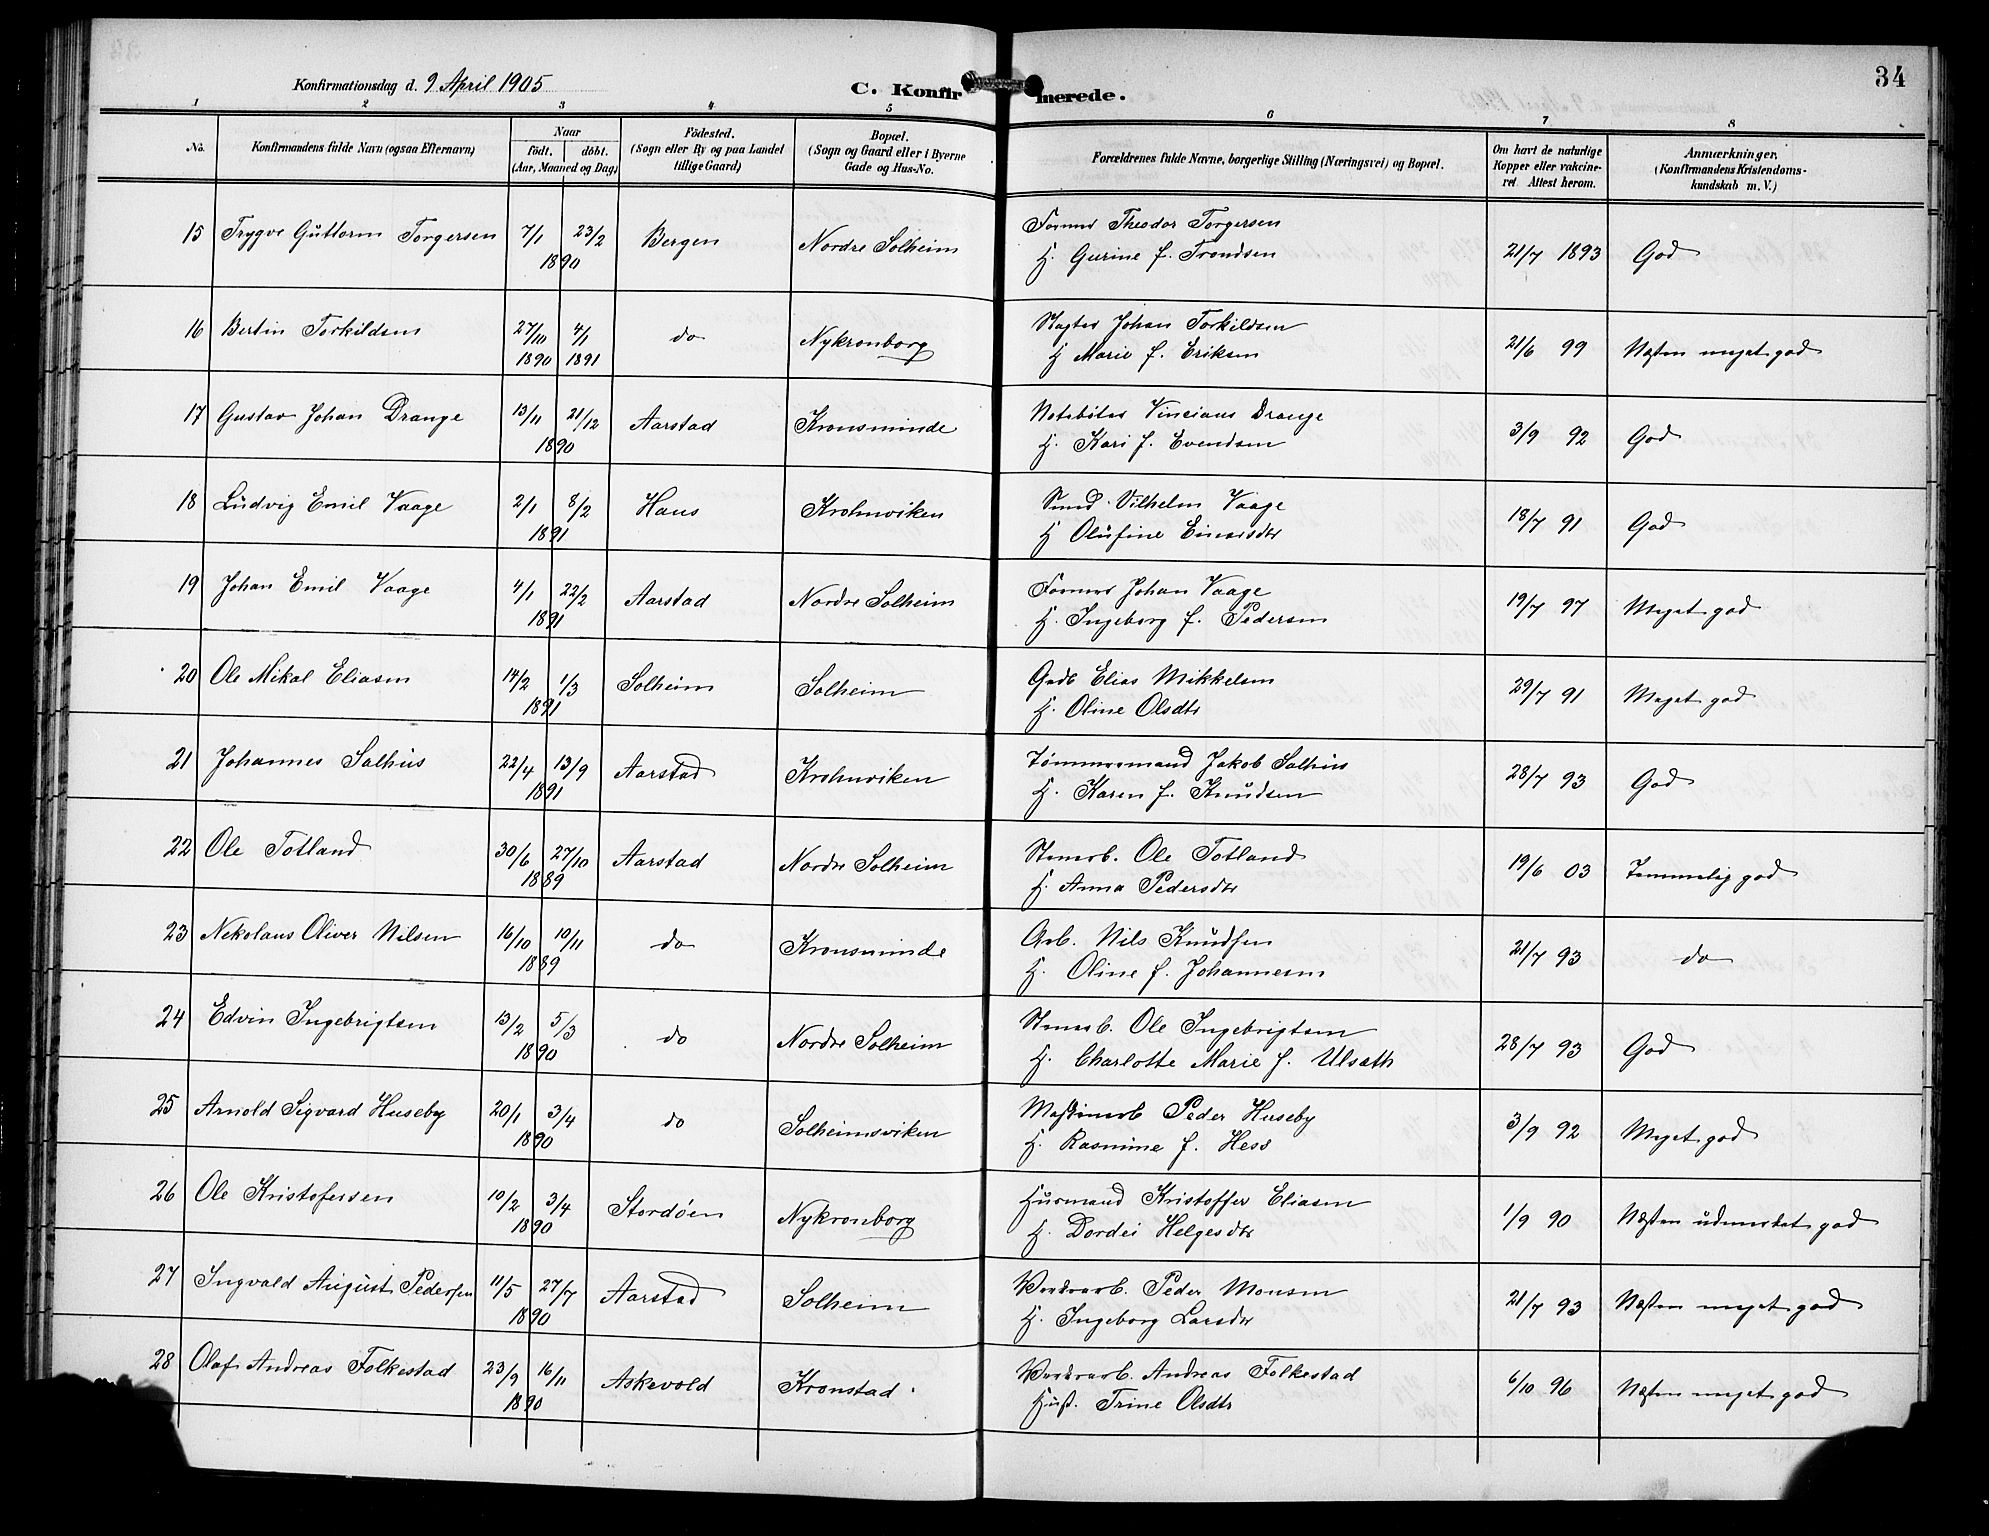 34
Konfirmationsdag d. 9 April 1905
C. Konfirmerede.
1 2 3 4 5 6 7 8
No.
Konfirmandens fulde Navn (ogsaa Efternavn)
Naar
födt. döbt.
(Aar, Maaned og Dag)
Födested.
(Sogn eller By og paa Landet
tillige Gaard)
Bopæl.
(Sogn og Gaard eller i Byerne
Gade og Hus-No.
Forældrenes fulde Navne, borgerlige Stilling (Næringsvei) og Bopæl.
Om havt de naturlige
Kopper eller vakcine-
ret Attest herom.
Anmærkninger,
(Konfirmandens Kristendoms-
kundskab m. V.)
15 Trygve Guttorm Torgersen 7/1 23/2 Bergen Nordre Solheim Former Theodor Torgersen 21/7 1893 God
1890 H. Gurine f. Trondsen
16 Bertin Torkildsen 27/10 4/1 do Nykronborg Slagter Johan Torkildsen 21/6 99 Næsten meget god
1890 1891 H Marie f. Eriksen
17 Gustav Johan Drange 13/11 21/12 Aarstad Kronsminde Notebøter Vinciaus Drange 3/9 92 God
1890 H. Kari f. Evendsen
18 Ludvig Emil Vaage 2/1 8/2 Haus Krohnviken Smed Vilhelm Vaage 18/7 91 God
1891 H Olufine Einarsdtr
19 Johan Emil Vaage 4/1 22/2 Aarstad Nordre Solheim Former Johan Vaage 19/7 97 Meget god
1891 H. Ingeborg f. Pedersen
20 Ole Mikal Eliasen 14/2 1/3 Solheim Solheim Gadb Elias Mikkelsen 29/7 91 Meget god
1891 H. Oline Olsdtr
21 Johannes Salhus 22/4 13/9 Aarstad Krohnviken Tømmermand Jakob Salhus 28/7 93 God
1891 H. Karen f. Knudsen
22 Ole Totland 30/6 27/10 Aarstad Nordre Solheim Stenarb. Ole Totland 19/6 03 Temmelig god
1889 H. Anna Pedersdtr
23 Nekolaus Oliver Nilsen 16/10 10/11 do Kronsminde Arb. Nils Knudsen 21/7 93 do
1889 H. Oline f. Johannesen
24 Edvin Ingebrigtsen 13/2 5/3 do Nordre Solheim Stenarb. Ole Ingebrigtsen 28/7 93 God
1890 H. Charlotte Marie f. Ulsath
25 Arnold Sigvard Huseby 20/1 3/4 do Solheimsviken Maskinarb Peder Huseby 3/9 92 Meget god
1890 H. Rasmine f. Hess
26 Ole Kristofersen 10/2 3/4 Stordøen Nykronborg Husmand Kristoffer Eliasen 1/9 90 Næsten udmerket god
1890 H. Dordei Helgesdtr
27 Ingvald August Pedersen 11/5 27/7 Aarstad Solheim Værkarb. Peder Monsen 21/7 93 Næsten meget god
1890 H. Ingeborg Larsdtr
28 Olaf Andreas Folkestad 23/9 16/11 Askevold Kronstad Værkarb. Andreas Folkestad 6/10 96 Næsten meget god
1890 Hust. Trine Olsdtr